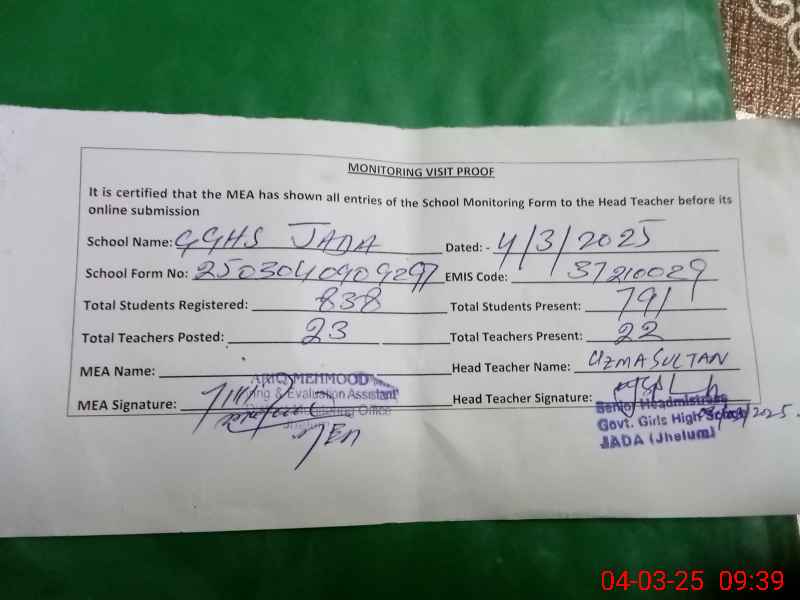 MONITORING VISIT PROOF
It is certified that the MEA has shown all entries of the School Monitoring Form to the Head Teacher before its
online submission
School Name: GGHS JADA Dated: - 4/3/2025
School Form No: 2503040909297 EMIS Code: 37210029
Total Students Registered: 838 Total Students Present: 791
Total Teachers Posted: 23 Total Teachers Present: 22
MEA Name: Head Teacher Name: UZMA SULTAN
MEHMOOD
& Evaluation Assistant
MEA Signature: Head Teacher Signature:
Office
Jhelum
MEA
Senior Headmistress
Govt. Girls High School
JADA (Jhelum)
04-03-25 09:39